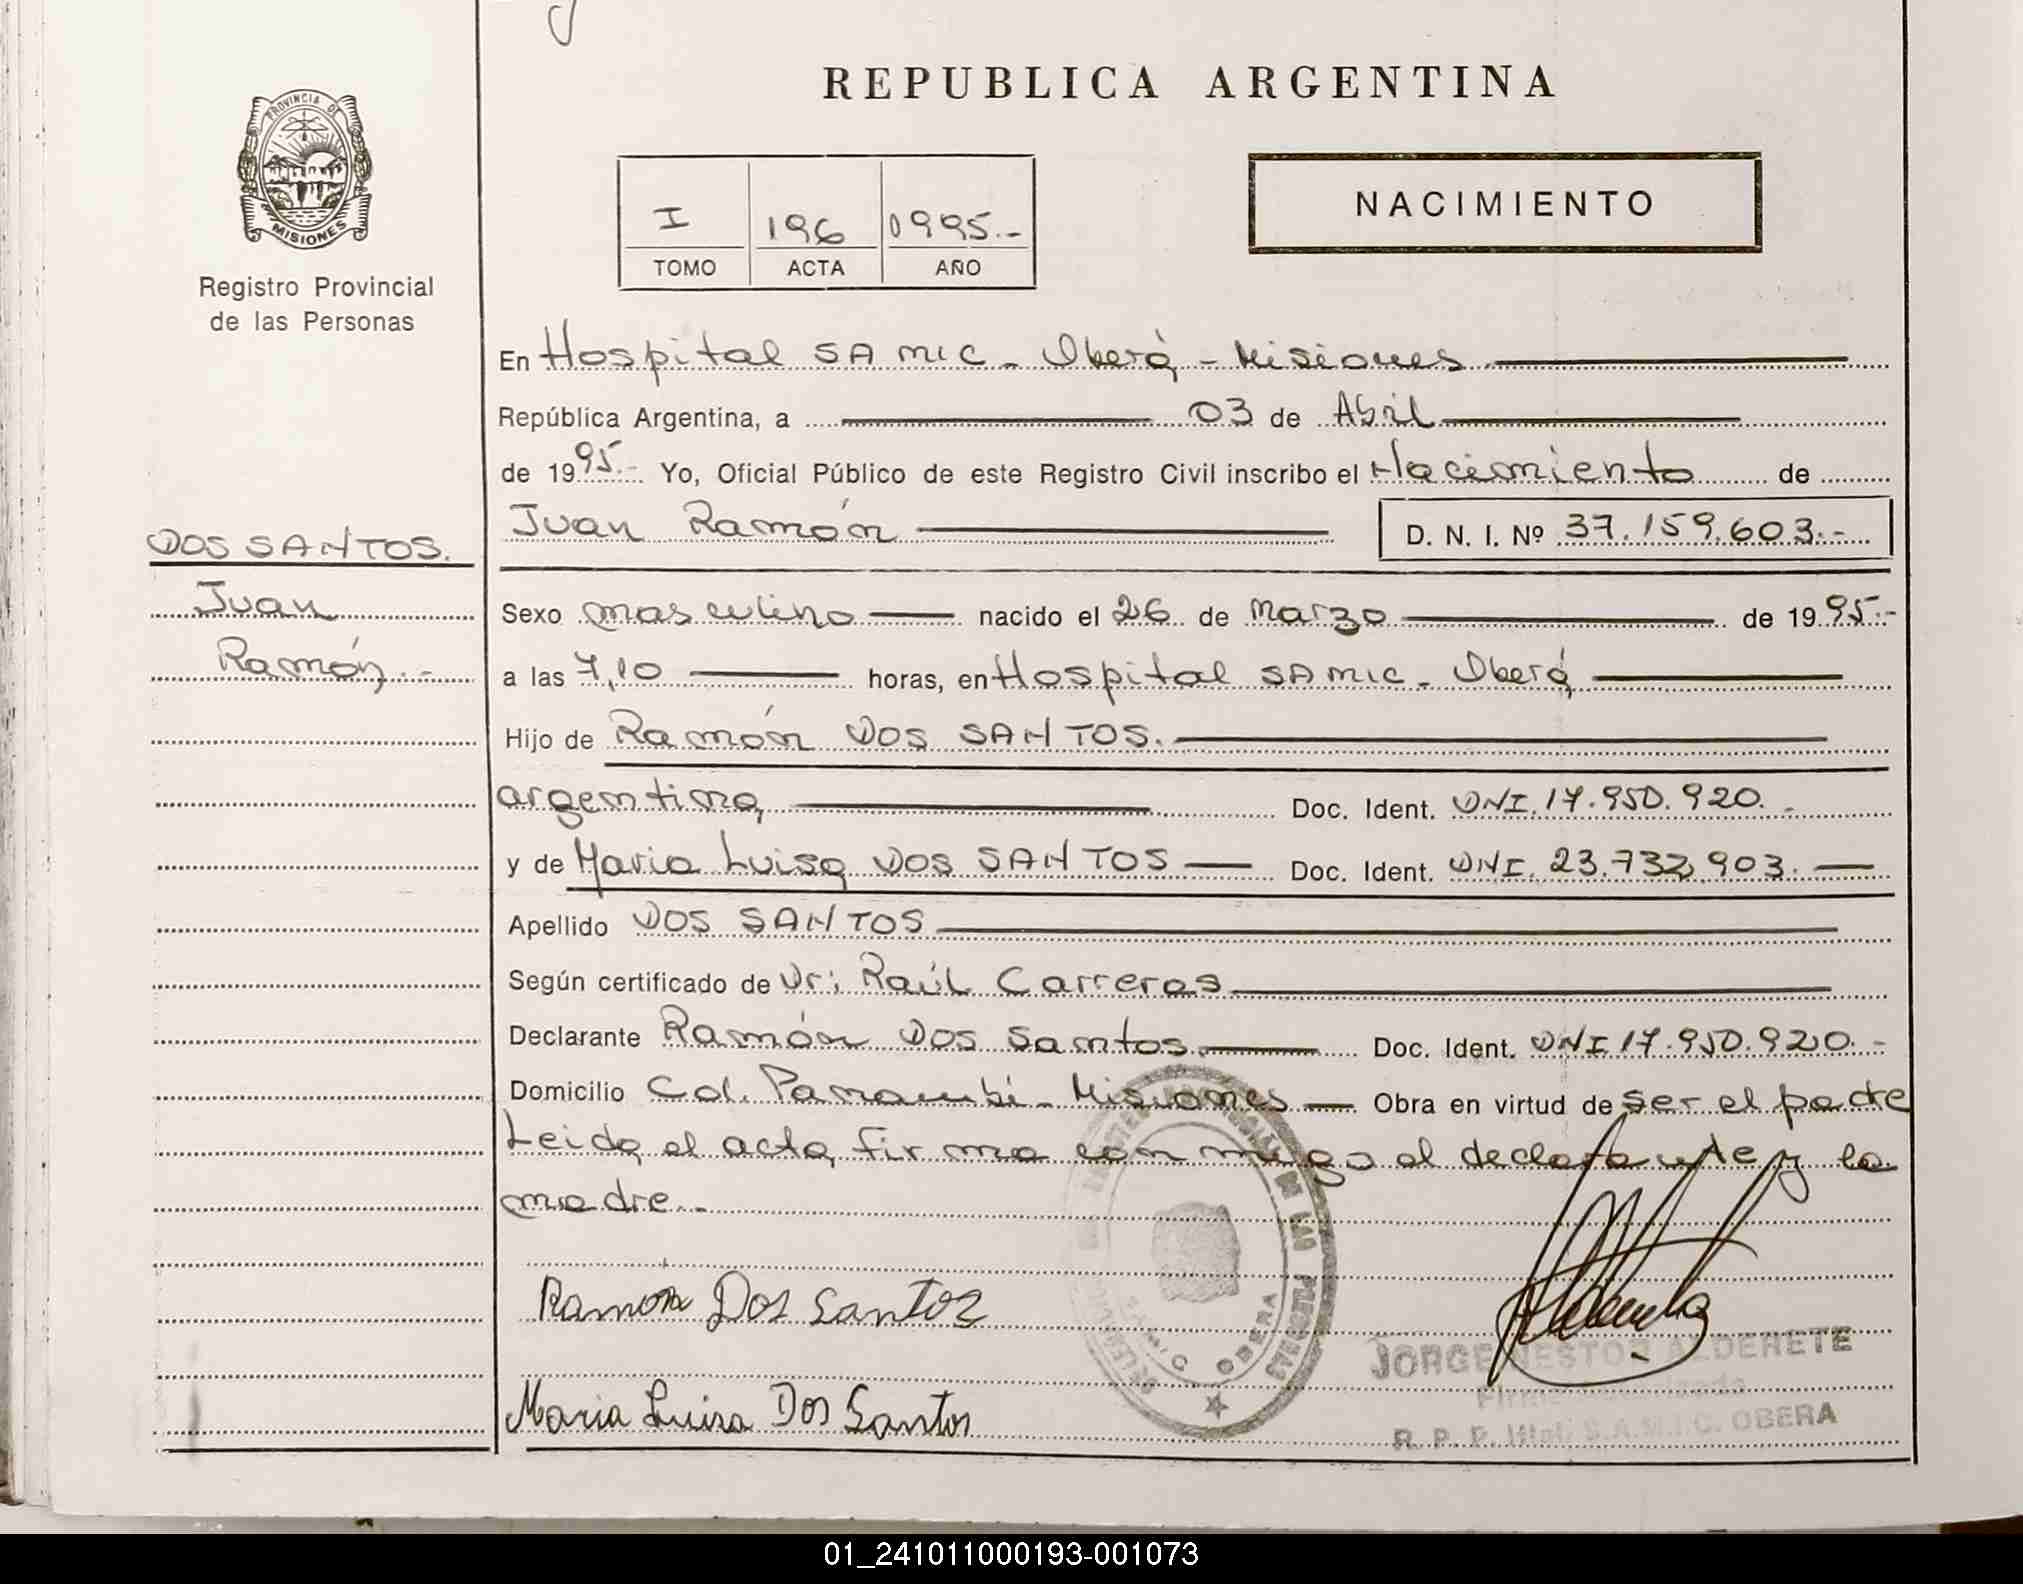 REPUBLICA ARGENTINA
PROVINCIA DE
MISIONES
Registro Provincial
de las Personas
NACIMIENTO
I 196 1995.-
TOMO ACTA AÑO
En Hospital SAMIC - Oberá - Misiones
República Argentina, a 03 de Abril
de 1995.- Yo, Oficial Público de este Registro Civil inscribo el Nacimiento de
Juan Ramón D. N. I. Nº 37.159.603.-
DOS SANTOS.
Juan
Ramón.-
Sexo masculino nacido el 26 de Marzo de 1995.-
a las 7,10 horas, en Hospital SAMIC - Oberá
Hijo de Ramón DOS SANTOS.
argentina, Doc. Ident. DNI. 17.950.920.-
y de Maria Luisa DOS SANTOS Doc. Ident. DNI. 23.732.903.
Apellido DOS SANTOS
Según certificado de Dr: Raúl Carreras
Declarante Ramón Dos Santos. Doc. Ident. DNI 17.950.920.-
Domicilio Col. Panambí - Misiones Obra en virtud de ser el padre
Leida el acta, firma conmigo el declarante y la
madre.-
Ramon Dos Santos
Maria Luisa Dos Santos
DE LAS PERSONAS
OBERA
JORGE NESTOR ALDERETE
R. P. P. Htal. S.A.M.I.C. OBERA
01_241011000193-001073